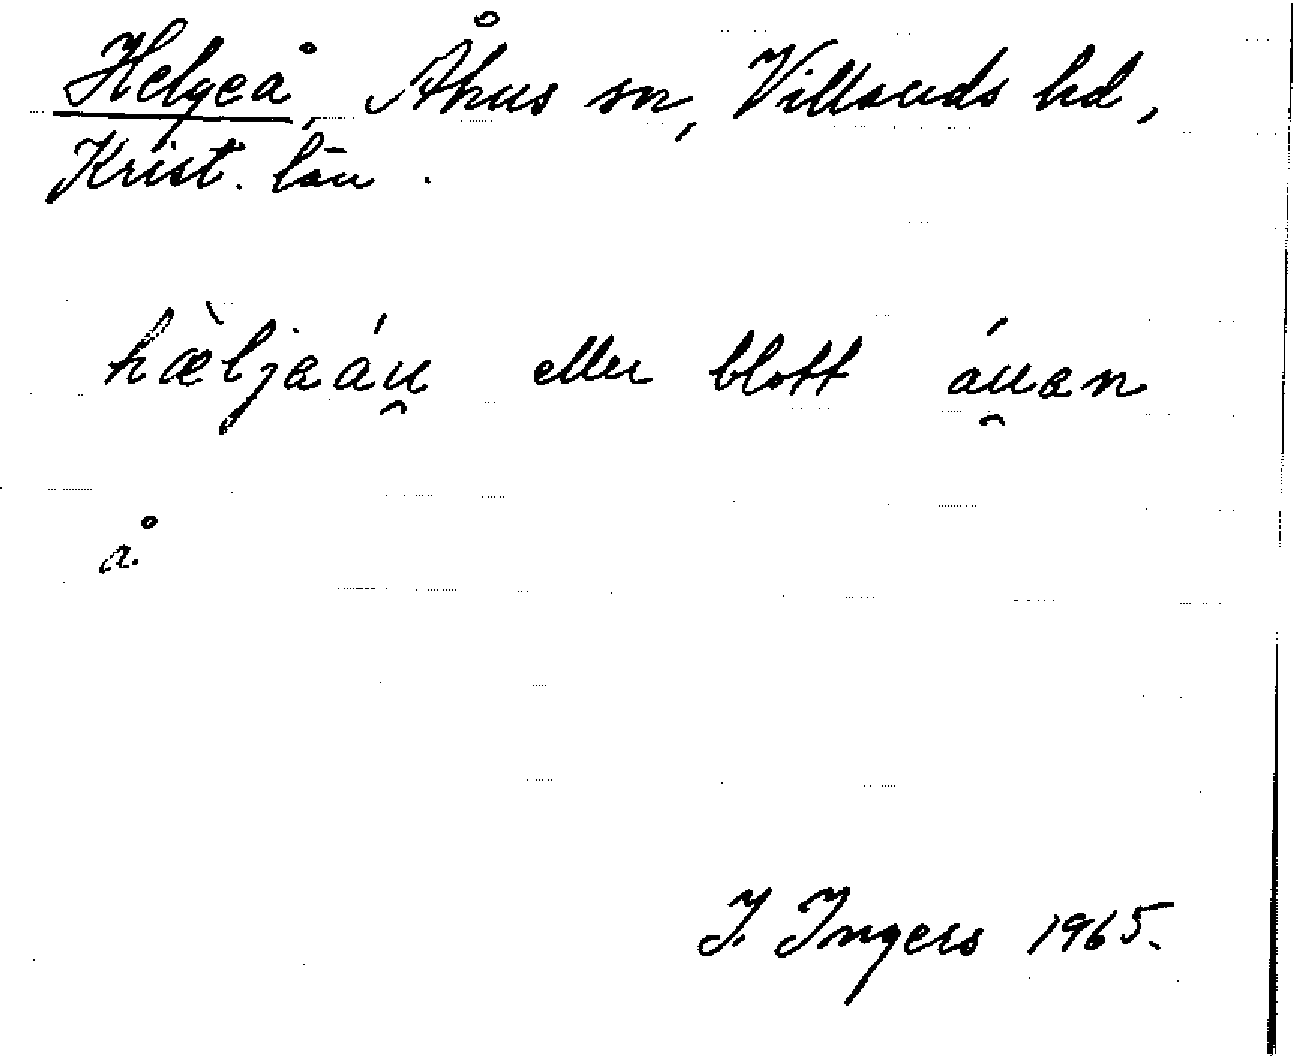 Helgeå, Åhus sn, Villands hd,
Krist. län.
hæ̀ljaáu̯ eller blott áu̯an
å.
I. Ingers 1965.